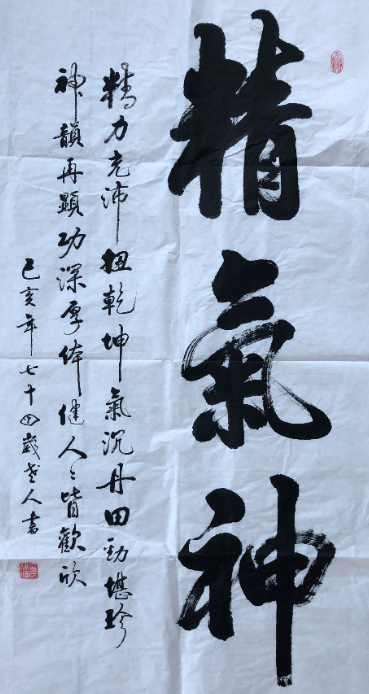 精氣神
精力充沛扭乾坤氣沉丹田勁堪珍
神韻再顯功深厚体健人々皆歡欣
己亥年七十四歲老人書